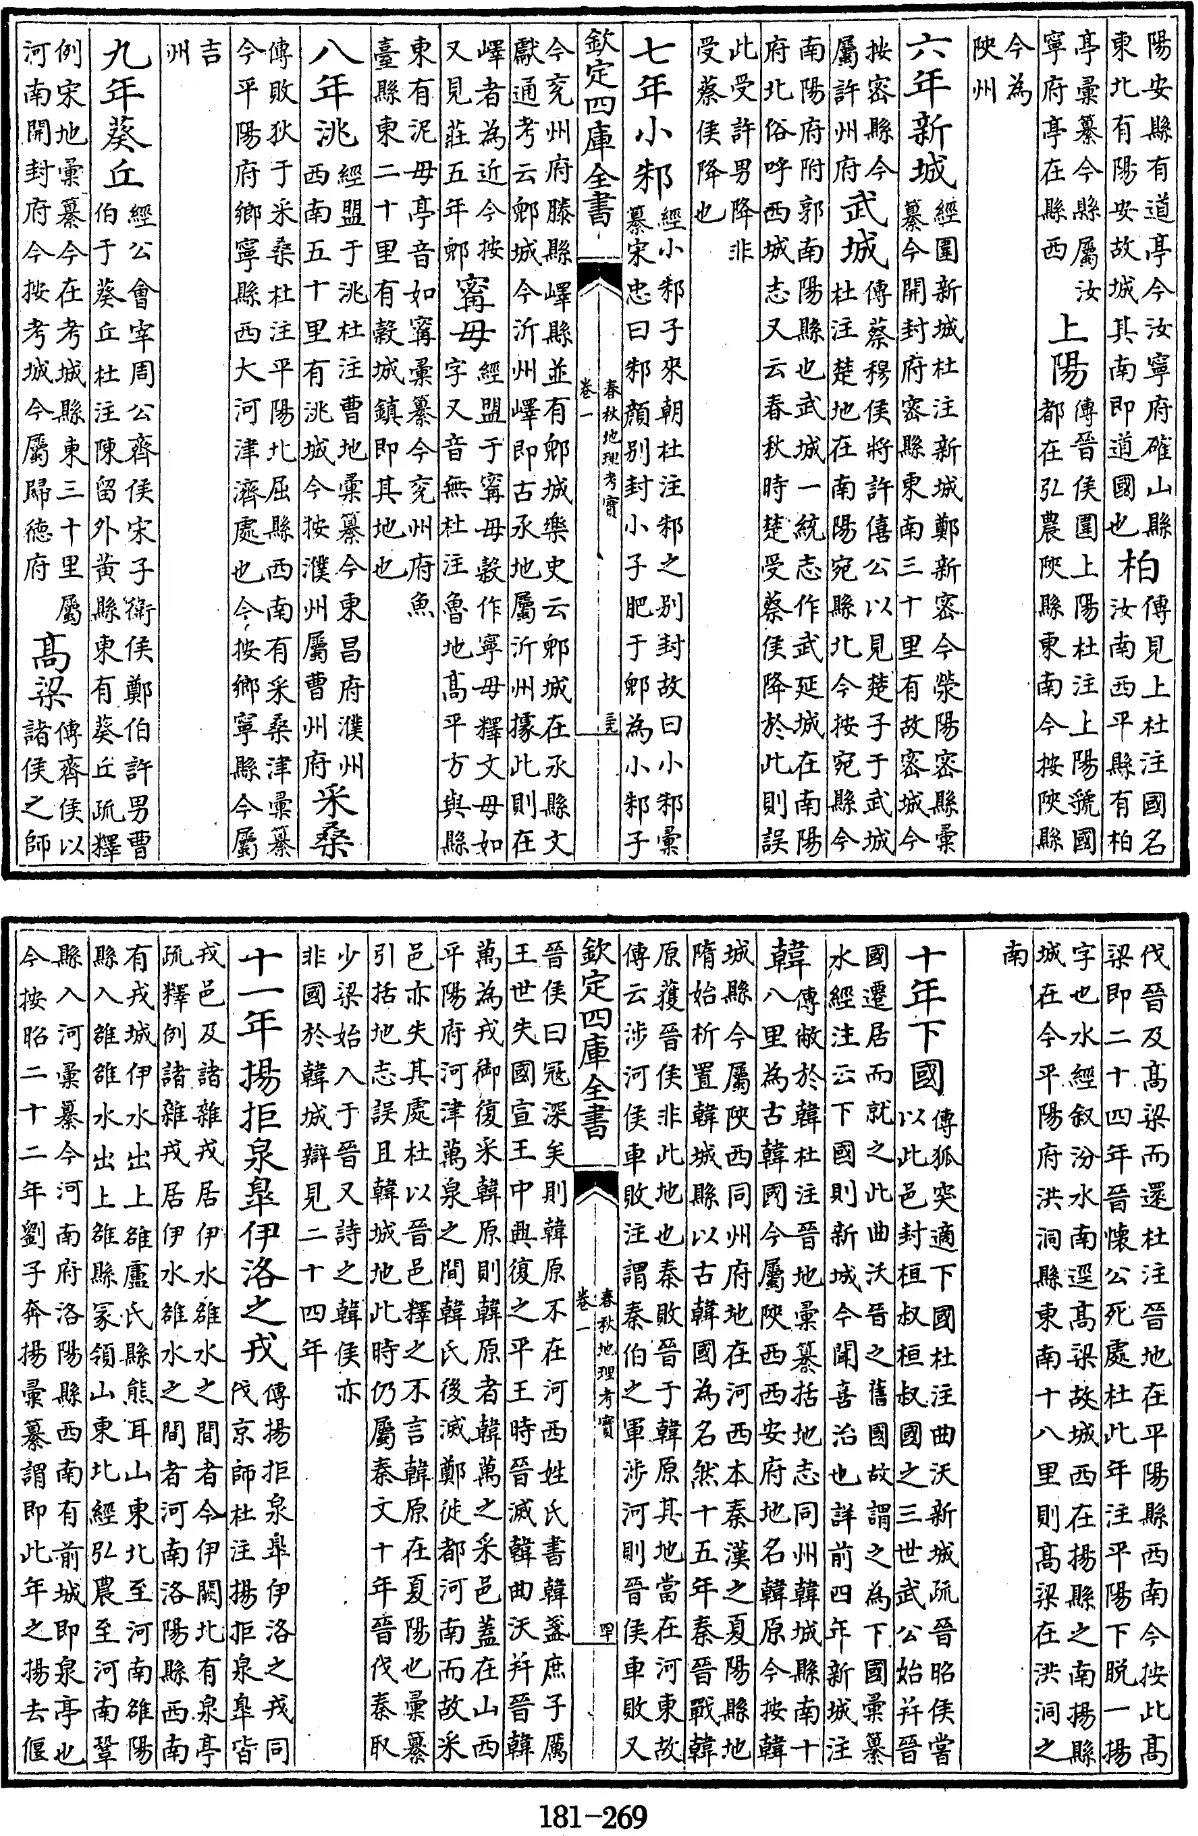 陽安縣有道亭今汝寧府確山縣
東北有陽安故城其南即道國也
柏
傳見上杜注國名
汝南西平縣有柏
亭彙纂今縣屬汝
寧府亭在縣西
上陽
傳晉侯圍上陽杜注上陽虢國
都在弘農陝縣東南今按陝縣
今為
陝州
六年新城
經圍新城杜注新城鄭新密今滎陽密縣彙
纂今開封府密縣東南三十里有故密城今
按密縣今
屬許州府
武城
傳蔡穆侯將許僖公以見楚子于武城
杜注楚地在南陽宛縣北今按宛縣今
南陽府附郭南陽縣也武城一統志作武延城在南陽
府北俗呼西城志又云春秋時楚受蔡侯降於此則誤
此受許男降非
受蔡侯降也
七年小邾
經小邾子來朝杜注邾之别封故曰小邾彙
纂宋忠曰邾顔别封小子肥于郳為小邾子
欽定四庫全書
春秋地理考實
卷一
三九
今兖州府滕縣嶧縣並有郳城樂史云郳城在承縣文
獻通考云郳城今沂州嶧即古承地屬沂州據此則在
嶧者為近今按
又見莊五年郳
寗母
經盟于寗母穀作寧母釋文母如
字又音無杜注魯地高平方與縣
東有泥母亭音如寗彙纂今兖州府魚
臺縣東二十里有穀城鎮即其地也
八年洮
經盟于洮杜注曹地彙纂今東昌府濮州
西南五十里有洮城今按濮州屬曹州府
采桑
傳敗狄于采桑杜注平陽北屈縣西南有采桑津彙纂
今平陽府鄉寧縣西大河津濟處也今按鄉寧縣今屬
吉
州
九年葵丘
經公會宰周公齊侯宋子衛侯鄭伯許男曹
伯于葵丘杜注陳留外黄縣東有葵丘疏釋
例宋地彙纂今在考城縣東三十里屬
河南開封府今按考城今屬歸德府
高梁
傳齊侯以
諸侯之師
伐晉及高梁而還杜注晉地在平陽縣西南今按此高
梁即二十四年晉懷公死處杜此年注平陽下脱一揚
字也水經叙汾水南逕高梁故城西在揚縣之南揚縣
城在今平陽府洪洞縣東南十八里則高梁在洪洞之
南
十年下國
傳狐突適下國杜注曲沃新城疏晉昭侯嘗
以此邑封桓叔桓叔國之三世武公始并晉
國遷居而就之此曲沃晉之舊國故謂之為下國彙纂
水經注云下國則新城今聞喜治也詳前四年新城注
韓
傳敝於韓杜注晉地彙纂括地志同州韓城縣南十
八里為古韓國今屬陝西西安府地名韓原今按韓
城縣今屬陝西同州府地在河西本秦漢之夏陽縣地
隋始析置韓城縣以古韓國為名然十五年秦晉戰韓
原獲晉侯非此地也秦敗晉于韓原其地當在河東故
傳云涉河侯車敗注謂秦伯之軍涉河則晉侯車敗又
欽定四庫全書
春秋地理考實
卷一
罕
晉侯曰寇深矣則韓原不在河西姓氏書韓葢庶子厲
王世失國宣王中興復之平王時晉滅韓曲沃并晉韓
萬為戎御復采韓原則韓原者韓萬之采邑蓋在山西
平陽府河津萬泉之間韓氏後滅鄭徙都河南而故采
邑亦失其處杜以晉邑釋之不言韓原在夏陽也彙纂
引括地志誤且韓城地此時仍屬秦文十年晉伐秦取
少梁始入于晉又詩之韓侯亦
非國於韓城辯見二十四年
十一年揚拒泉臯伊洛之戎
傳揚拒泉臯伊洛之戎同
伐京師杜注揚拒泉臯皆
戎邑及諸雜戎居伊水雒水之間者今伊闕北有泉亭
疏釋例諸雜戎居伊水雒水之間者河南洛陽縣西南
有戎城伊水出上雒盧氏縣熊耳山東北至河南雒陽
縣入雒雒水出上雒縣冢領山東北經弘農至河南鞏
縣入河彙纂今河南府洛陽縣西南有前城即泉亭也
今按昭二十二年劉子奔揚彙纂謂即此年之揚去偃
181-269